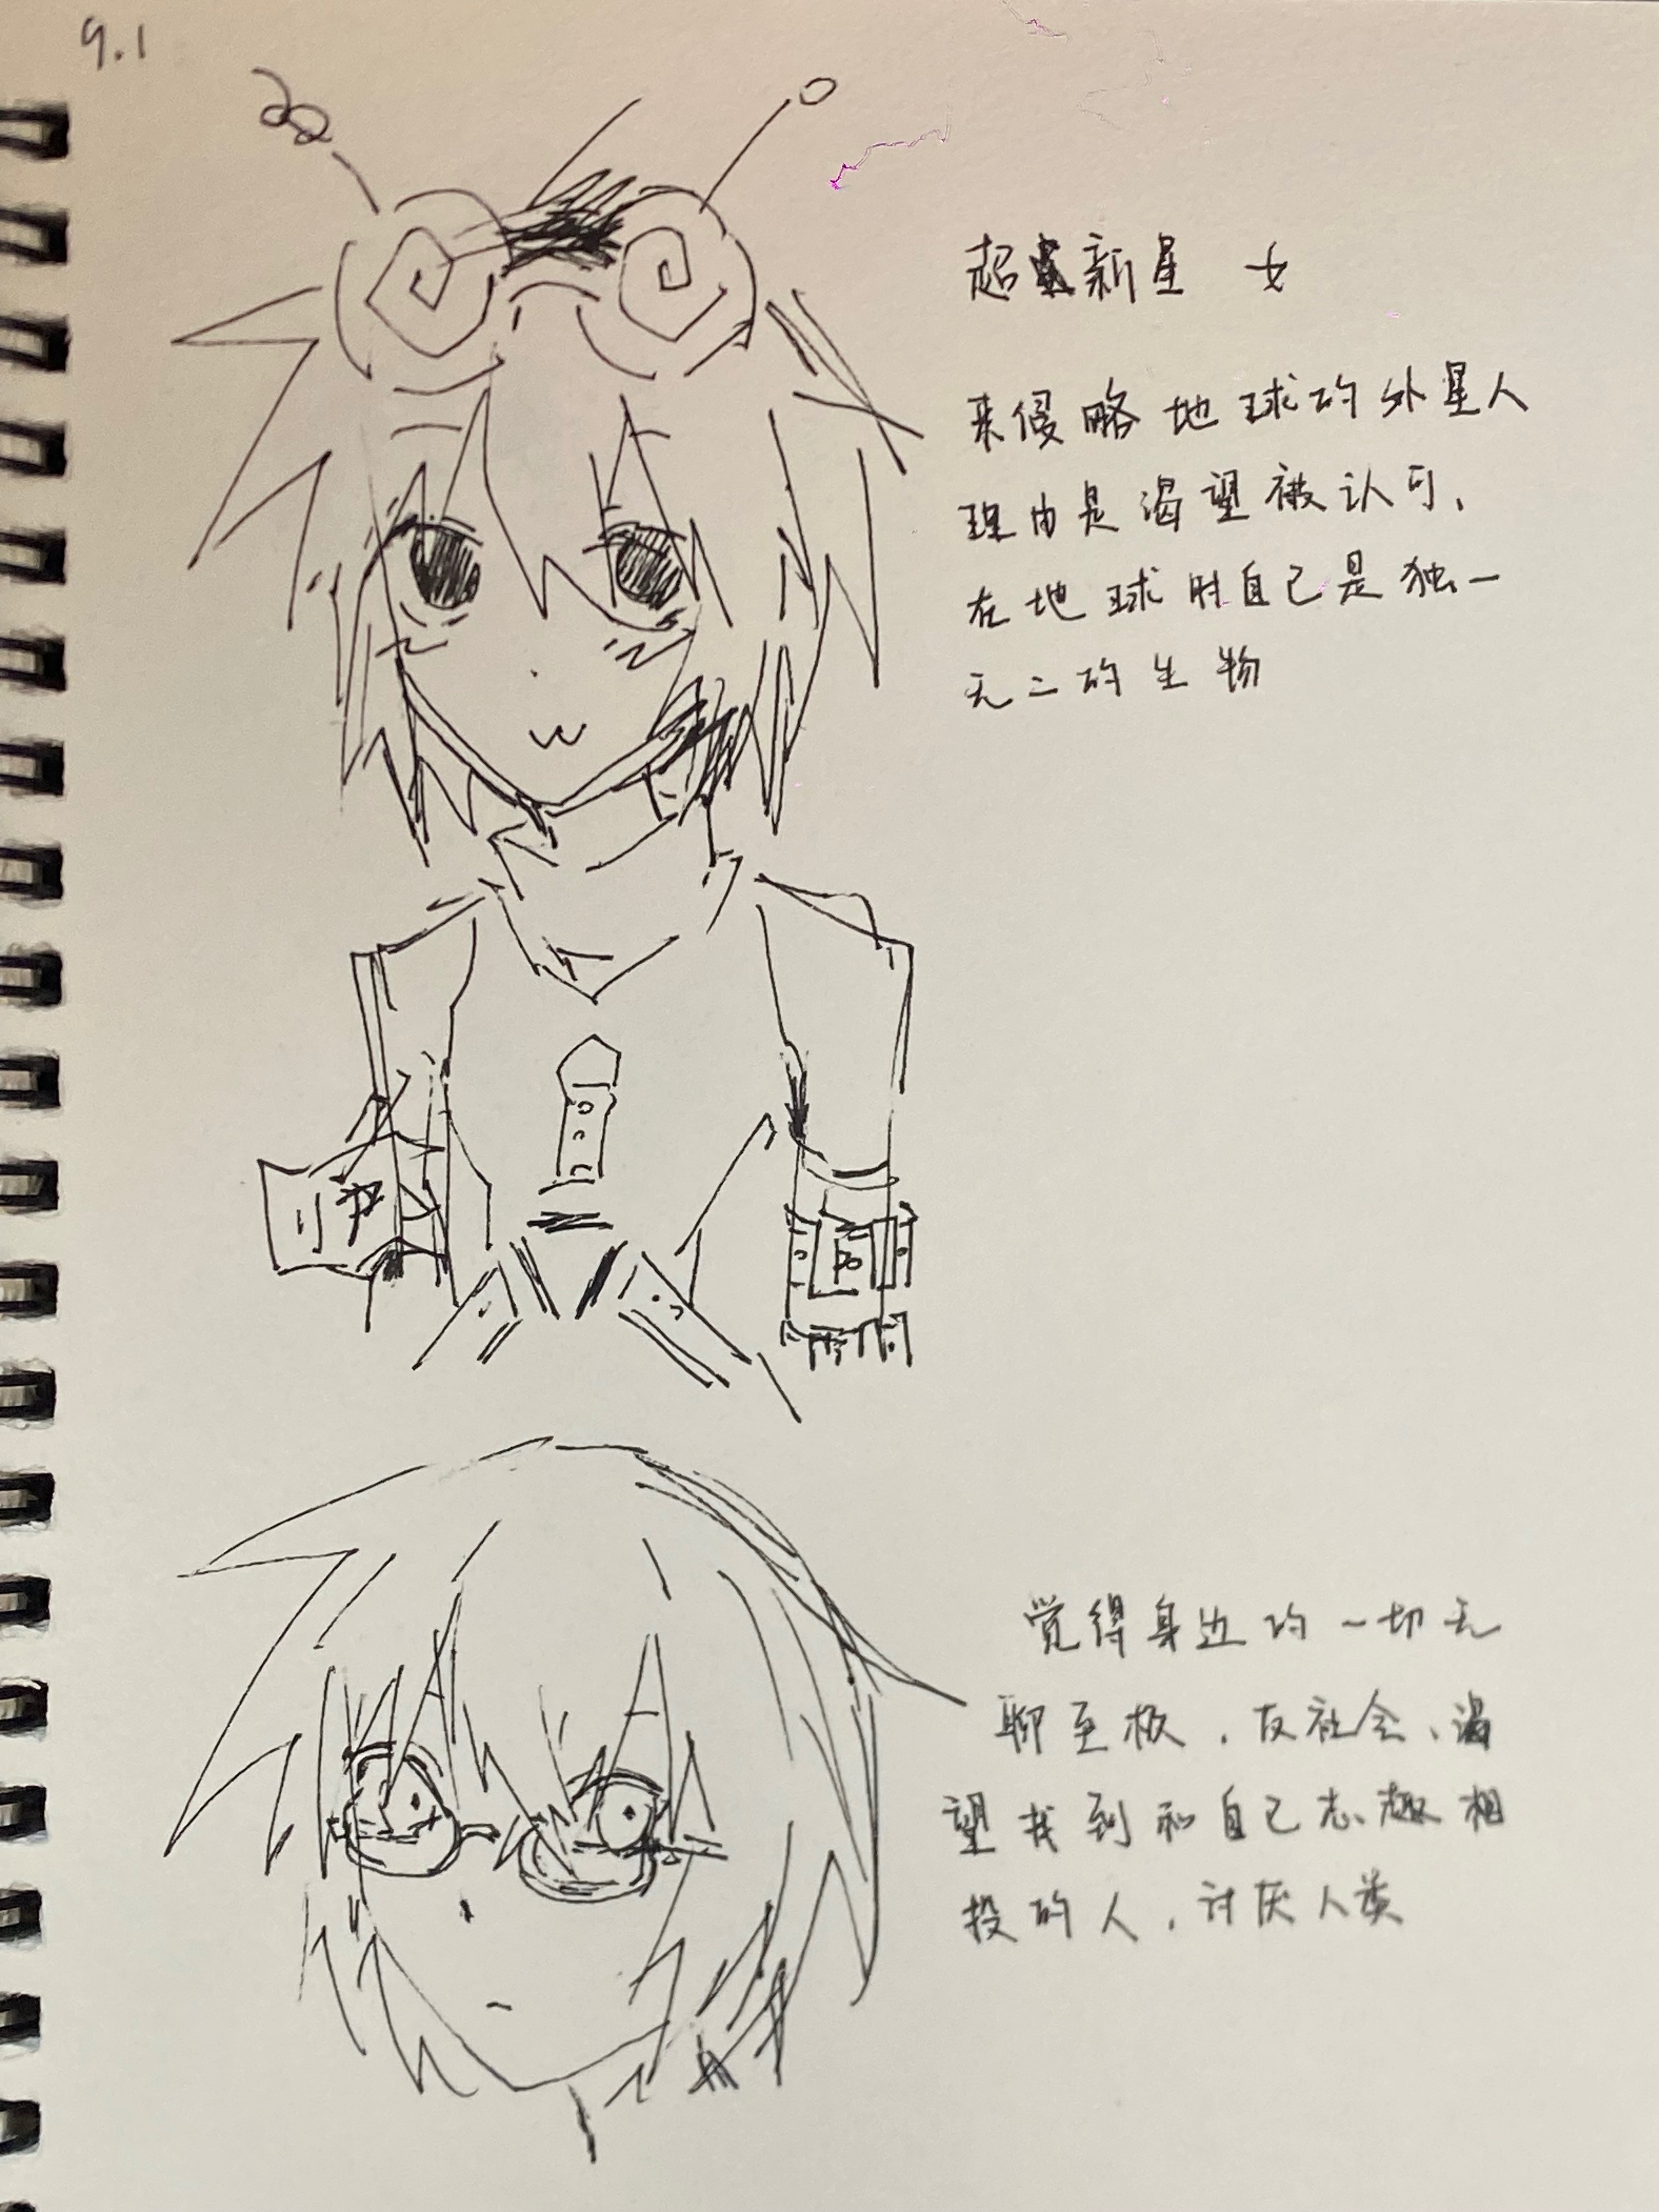 9.1
超新星 女
来侵略地球的外星人
理由是渴望被认可、
在地球时自己是独一
无二的生物
觉得身边的一切无
聊至极．反社会、渴
望找到和自己志趣相
投的人．讨厌人类